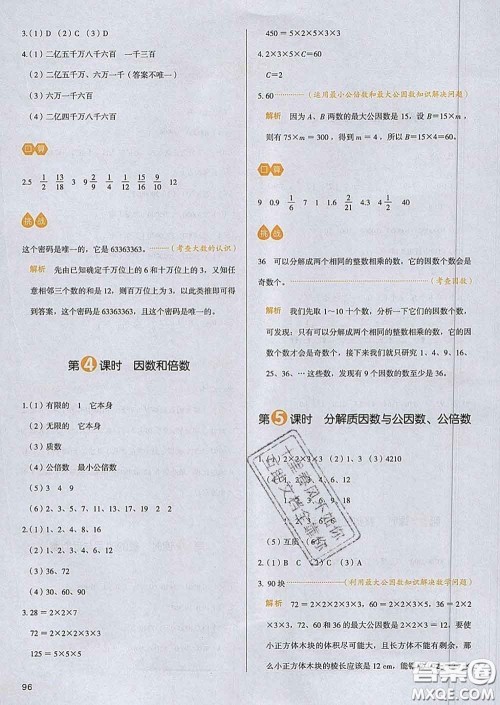 3.(1) D (2) C (3) D
4.(1) 二亿五千万八千六百 一千三百
(2) 二亿五千万、六万一千(答案不唯一)
(3) 六万一千六百
(4) 二亿四千万八千六百
口算
2.5 1/2 13/18 3 9 1/2 1/4 1/12 15/16 9/10 12
挑战
这个密码是唯一的,它是 63363363。(考查大数的认识)
解析 先由已知确定千万位上的 6 和十万位上的 3,又知任
意相邻三个数的和是 12,则百万位上是 3,以此类推即可得
到答案,这个密码是 63363363,且这个密码是唯一的。
第4课时 因数和倍数
1.(1) 有限的 1 它本身
(2) 无限的 它本身
(3) 质数
(4) 公倍数 最小公倍数
(5) 3 4 9
(6) 2、3、5、7、11、13、17、19、23
2.(1) 1、2、3、4、6、9、12、18、36
(2) 1、2、3、6
(3) 24、36、48
(4) 30、60、90
3. 28 = 2×2×7
72 = 2×2×2×3×3
125 = 5×5×5
96
450 = 2×5×5×3×3
4. 2×2×3×3×5
C=2
5. 60 (运用最小公倍数和最大公因数知识解决问题)
解析 因为 A、B 两数的最大公因数是 15,设 B=15×m,
则有 75×m = 300,得到 m = 4,所以 B=15×4=60。
口算
9 0.9 1/6 7 1 1.6 2/21 4.3 4 1/2
挑战
36 可以分解成两个相同的整数相乘的数,它的因数个数会是
奇数个。(考查因数)
解析 我们先取 1~10 十个数,分析一下它们的因数个数,
可发现:只有可以分解成两个相同的整数相乘的数,它的因
数个数才会是奇数个,接下来我们就只研究 1、4、9、16、
25、36、… 这些数,发现有 9 个因数的数至少是 36。
第5课时 分解质因数与公因数、公倍数
1.(1) 2×2×3×3 (2) 1、3 4210
(4) 1、2、3、4、6、9、12
1、2、3、4、6、12
(5) 互质
2.(1) B (2) A (3) C (4) A
3. 90 块 (利用最大公因数知识解决数学问题)
解析 72 = 2×2×2×3×3,60 = 2×2×3×5,36 =
2×2×3×3,72、60 和 36 的最大公因数是 2×2×3=12,要使
小正方体木块的体积尽可能大,且长方体不能有剩余,则
小正方体木块的棱长应该是 12 cm,能
答案圈
MXQE.COM